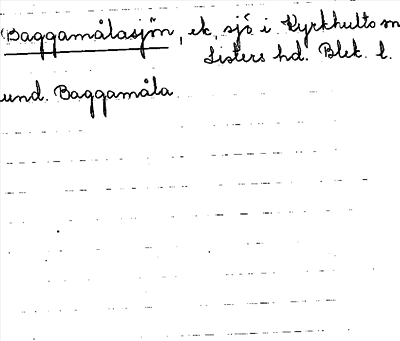 Baggamålasjön, ek, sjö i Kyrkhults sn
Listers hd. Blek. l.
und. Baggamåla